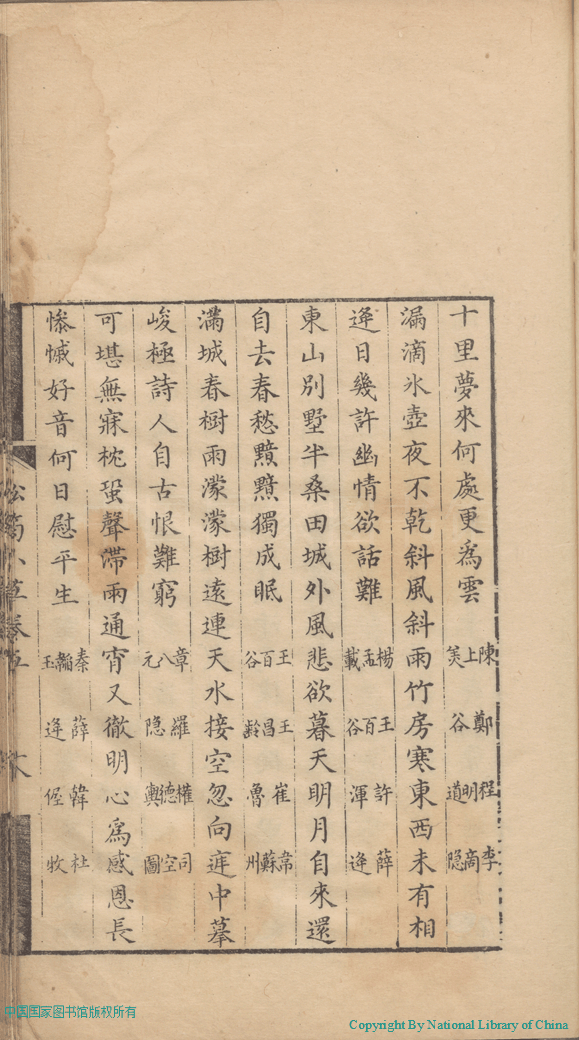 十里夢來何處更爲雲 陳上美 鄭谷 程明道 李商隐
漏滴氷壺夜不乾斜風斜雨竹房寒東西未有相
逢日幾許幽情欲話難 楊孟載 王百谷 許渾 薛逢
東山別墅半桑田城外風悲欲暮天明月自來還
自去春愁黯黯獨成眠 王百谷 王昌齡 崔魯 韋蘇州
滿城春樹雨濛濛樹遠連天水接空忽向庭中摹
峻極詩人自古恨難窮 章八元 羅隐 權德輿 司空圖
可堪無寐枕蛩聲滯雨通宵又徹明心爲感恩長
慘慽好音何日慰平生 秦韜玉 薛逢 韓偓 杜牧
松筠小草卷五
中国国家图书馆版权所有
Copyright By National Library of China